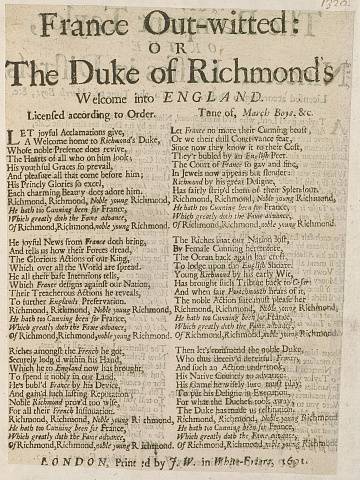 1320
France Out-witted:
OR
The Duke of Richmond's
Welcome into ENGLAND.
Licensed according to Order. Tune of, March Boys, &c.
LET joyful Acclamations give,
A Welcome home to Richmond's Duke,
Whose noble Presence does revive,
The Hearts of all who on him look;
His youthful Graces so prevail,
And please all that come before him;
His Princly Glories so excel,
Each charming Beauty does adore him.
Richmond, Richmond, Richmond, Noble young Richmond,
He hath too Cunning been for France,
Which greatly doth the Fame advance,
Of Richmond, Richmond, noble young Richmond.
He joyful News from France doth bring,
And tells us how their Forces dread,
The Glorious Actions of our King,
Which over all the World are spread:
He all their base Intentions tells,
Which France designs against our Nation,
Their Treacherous Actions he reveals,
To further Englands Preservation.
Richmond, Richmond, Richmond, Noble young Richmond,
He hath too Cunning been for France,
Which greatly doth the Fame advance,
Of Richmond, Richmond, noble young Richmond.
Riches amongst the French he got,
Securely lodg'd within his Hand,
Which he to England now has brought,
To spend it nobly in our Land:
He's bubl'd France by his Device,
And gain'd such lasting Reputation;
Noble Richmond prov'd too wise,
For all their French Insinuation.
Richmond, Richmond, Richmond, Noble young Richmond,
He hath too Cunning been for France,
Which greatly doth the Fame advance,
Of Richmond, Richmond, noble young Richmond.
Let France no more their Cunning boast,
Or we their dull Contrivance fear,
Since now they know it to their Cost,
They's bubled by an English Peer.
The Court of France so gay and fine,
In Jewels now appears but slender:
Richmond by his great Design,
Has fairly strip'd them of their Splendour.
Richmond, Richmond, Richmond, Noble young Richmond,
He hath too Cunning been for France,
Which greatly doth the Fame advance,
Of Richmond, Richmond, noble young Richmond.
The Riches that our Nation lost,
By Female Cunning hence convey'd
The Ocean back again has crost,
To lodge upon the English
Young Richmond by his early Wit,
Has brought such Tribute back to Cæsar;
And when fair Portsmouth hears of it,
The noble Action sure must please her
Richmond, Richmond, Richmond, Noble young Richmond,
He hath too Cunning been for France,
Which greatly doth the Fame advance,
Of Richmond, Richmond, noble young Richmond.
Then let's commend the noble Duke,
Who thus deceiv'd deceitful France,
And such an Action undertook,
His Native Country to advance;
His Game he wisely sure must play,
To put his Designs in Execution,
For what the Dutchess took away,
The Duke has made us restitution.
Richmond, Richmond, Richmond, Noble young Richmond
He hath too Cunning been for France,
Which greatly doth the Fame advance,
Of Richmond, Richmond, noble young Richmond.
LONDON, Printed by J.W. in White-Friers, 1691.